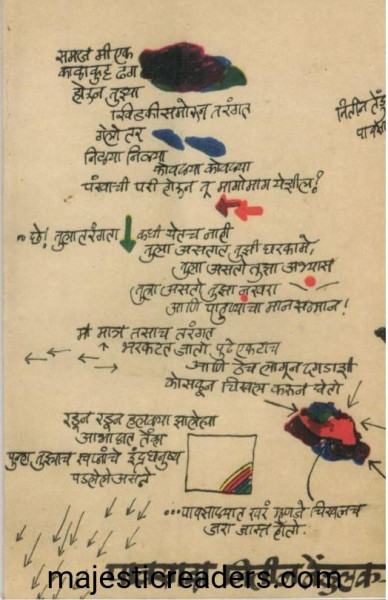 समज मी एक
काळाकुट्ट ढग
होऊन तुझ्या
खिडकीसमोरून तरंगत
गेलो तर
निळ्या निळ्या
कोवळ्या कोवळ्या
पंखाची परी होऊन तू मागोमाग येशील?
छे! तुला तरंगता कधी येतच नाही
तुला असतात तुझी घरकामे,
तुला असतो तुझा अभ्यास
तुला असतो तुझा नखरा
आणि पाहुण्यांचा मानसन्मान!
मी मात्र तसाच तरंगत
भरकटत जातो पुढे एकटाच
आणि ठेच लागून दगडाची
कोसळून चिखल करून घेतो
रडून रडून हलक्या झालेल्या
आभाळात तेव्हा
पुन्हा तुझ्याच स्वप्नांचे इंद्रधनुष्य
पडलेले असते
...पावसाळ्यात खरं म्हणजे चिखलच
जरा जास्त होतो.
नितीन
majesticreaders.com